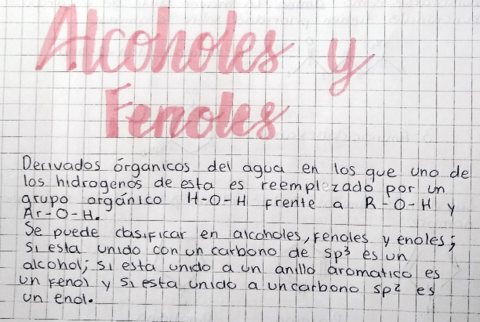 Alcoholes y
Fenoles
Derivados órganicos del agua en los que uno de
los hidrogenos de esta es reemplazado por un
grupo orgánico H-O-H frente a R-O-H y
Ar-O-H.
Se puede clasificar en alcoholes, Fenoles y enoles;
si esta unido con un carbono de sp³ es un
alcohol; si esta unido a un anillo aromatico es
un Fenol y si esta unido a un carbono sp² es
un enol.